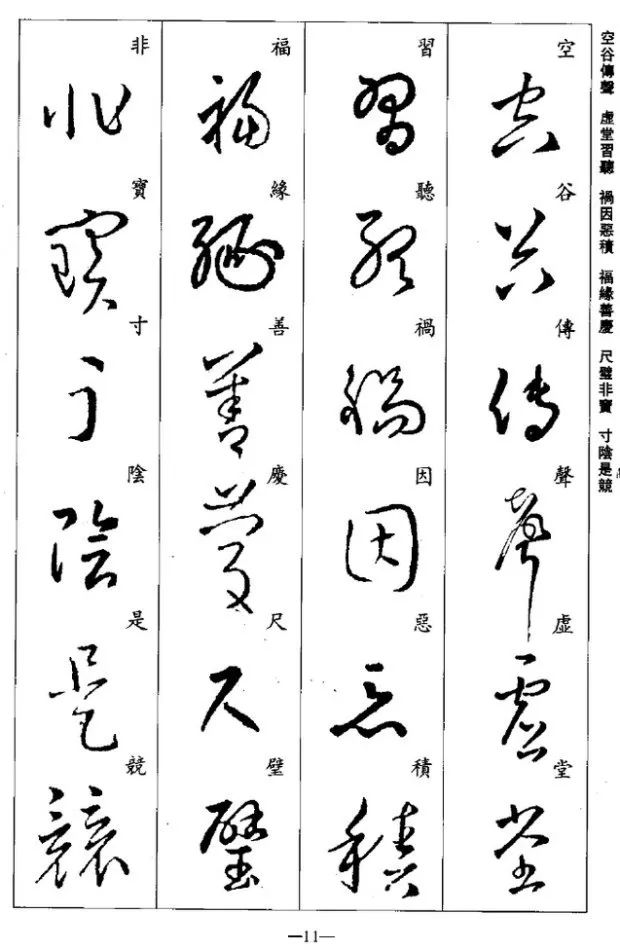 空谷傳聲 虛堂習聽 禍因惡積 福緣善慶 尺璧非寶 寸陰是競
空谷傳聲虛堂
習聽禍因惡積
福緣善慶尺璧
非寶寸陰是競
—11—